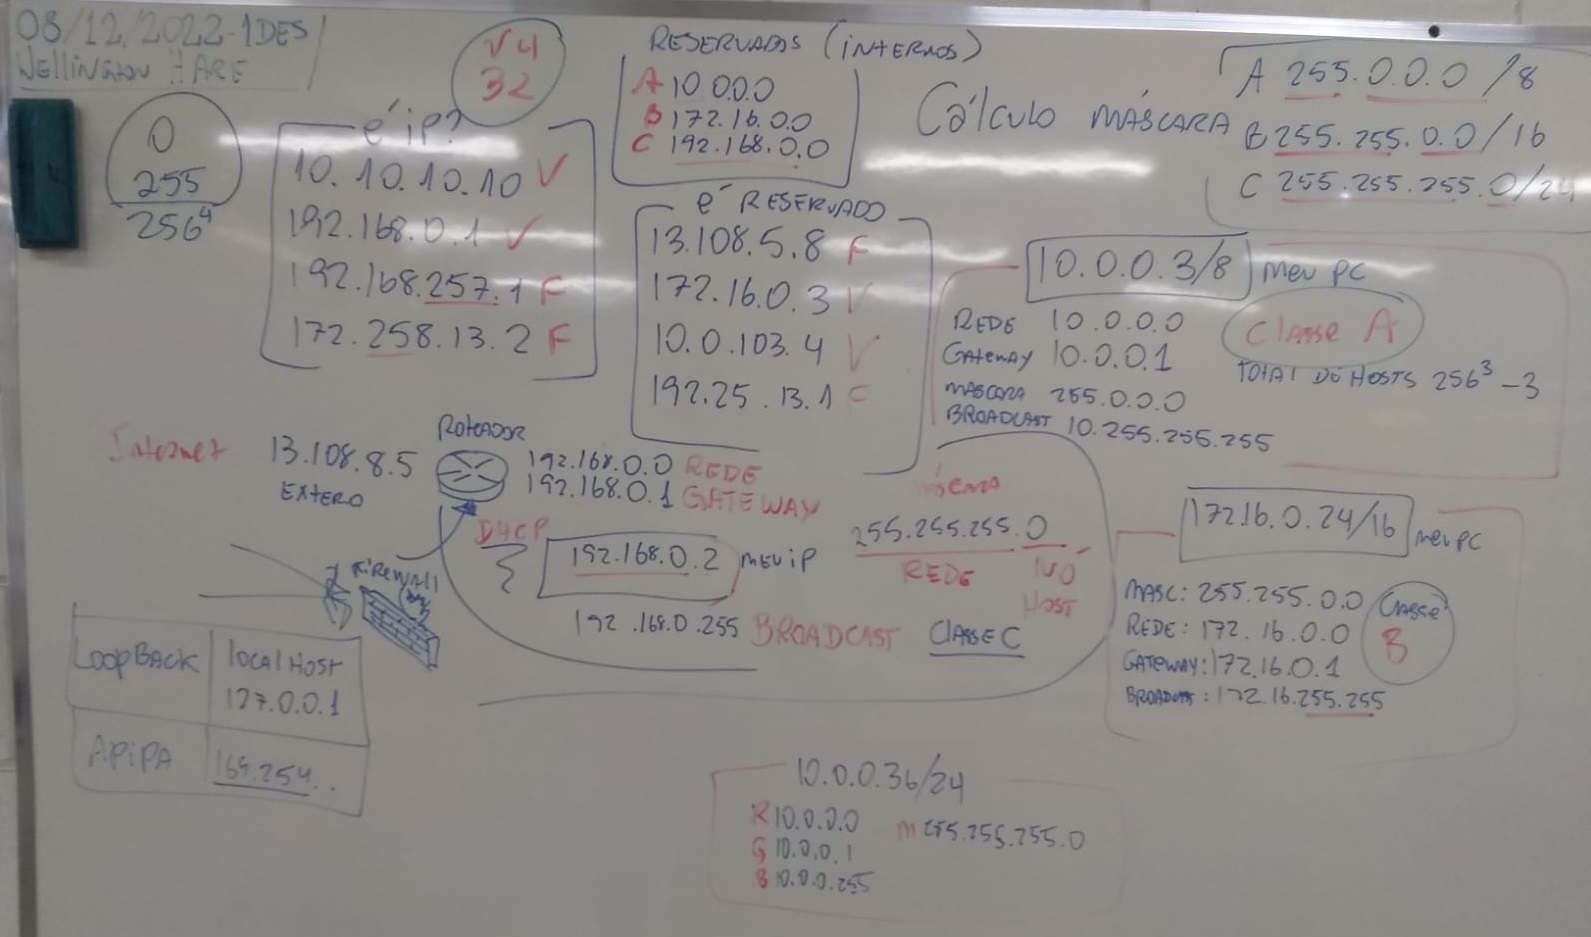 08/12/2022-1DES
Wellington HARE
0
255
256⁴
V4
32
é iP?
10.10.10.10 V
192.168.0.1 V
192.168.257.1 F
172.258.13.2 F
RESERVADOS (iNTERNOS)
A 10.0.0.0
B 172.16.0.0
C 192.168.0.0
é RESERVADO
13.108.5.8 F
172.16.0.3 V
10.0.103.4 V
192.25.13.1 F
Cálculo MÁSCARA
A 255.0.0.0 /8
B 255.255.0.0/16
C 255.255.255.0/24
10.0.0.3/8 meu PC
REDE 10.0.0.0
Gateway 10.0.0.1
MASCARA 255.0.0.0
BROADCAST 10.255.255.255
Classe A
TOTAL DE HOSTS 256³ -3
Internet
13.108.8.5
EXTERO
ROTEADOR
192.168.0.0 REDE
192.168.0.1 GATEWAY
DHCP
192.168.0.2 MEU iP
192.168.0.255 BROADCAST CLASSE C
255.255.255.0
REDE
NÓ
HOST
FIREWALL
LOOPBACK localHost
127.0.0.1
APiPA 169.254..
172.16.0.24/16 meu PC
MASC: 255.255.0.0
REDE: 172.16.0.0
GATEWAY: 172.16.0.1
BROADCAST: 172.16.255.255
Classe
B
10.0.0.36/24
R 10.0.0.0
G 10.0.0.1
B 10.0.0.255
m 255.255.255.0